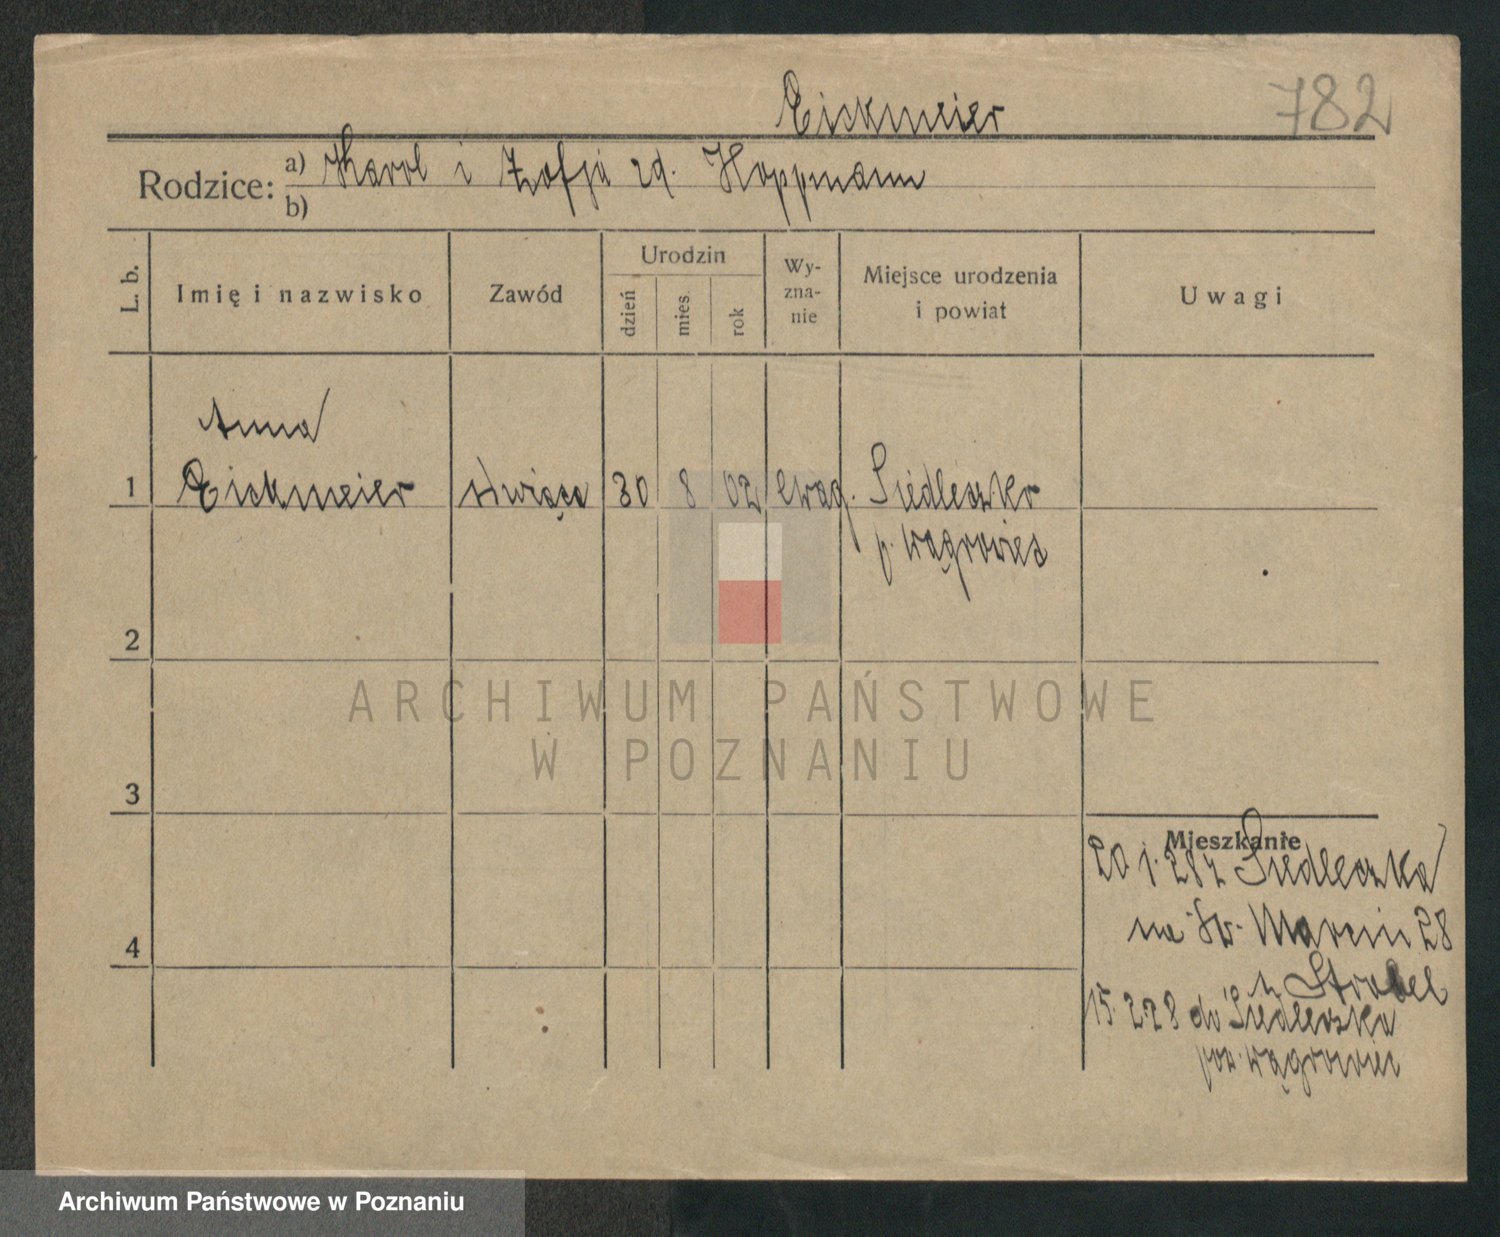 Eickmeier
782
Rodzice: a) Karol i Zofja zd. Hoppmann
b)
L. b.
Imię i nazwisko
Zawód
Urodzin
dzień
mies.
rok
Wy-
zna-
nie
Miejsce urodzenia
i powiat
Uwagi
Anna
1 Eickmeier służąca 30 8 02 ewag. Siedleczko
p. Wągrowiec
2
3
4
ARCHIWUM PAŃSTWOWE
W POZNANIU
Mieszkanie
20.1.28 z Siedleczka
na Św. Marcin 28
u Strobel
15.2.28 do Siedleczka
pow. Wągrowiec
Archiwum Państwowe w Poznaniu